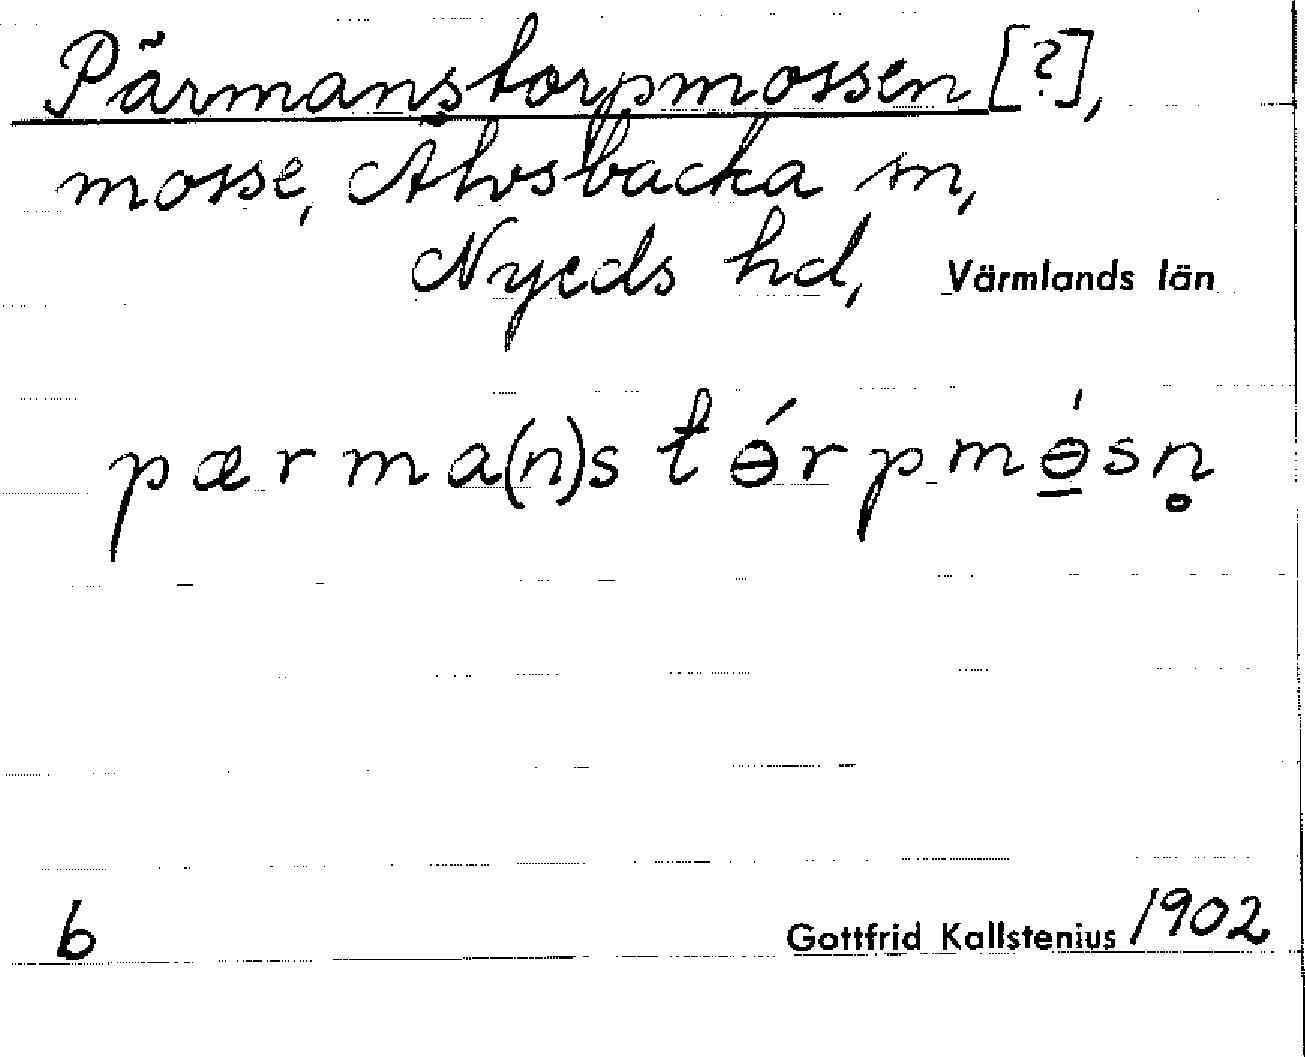 Pärmanstorpmossen [?],
mosse, Älvsbacka sn,
Nyeds hd, Värmlands län
pærma(n)s tɵ́rpmɵ̠́sn̥
b Gottfrid Kallstenius 1902